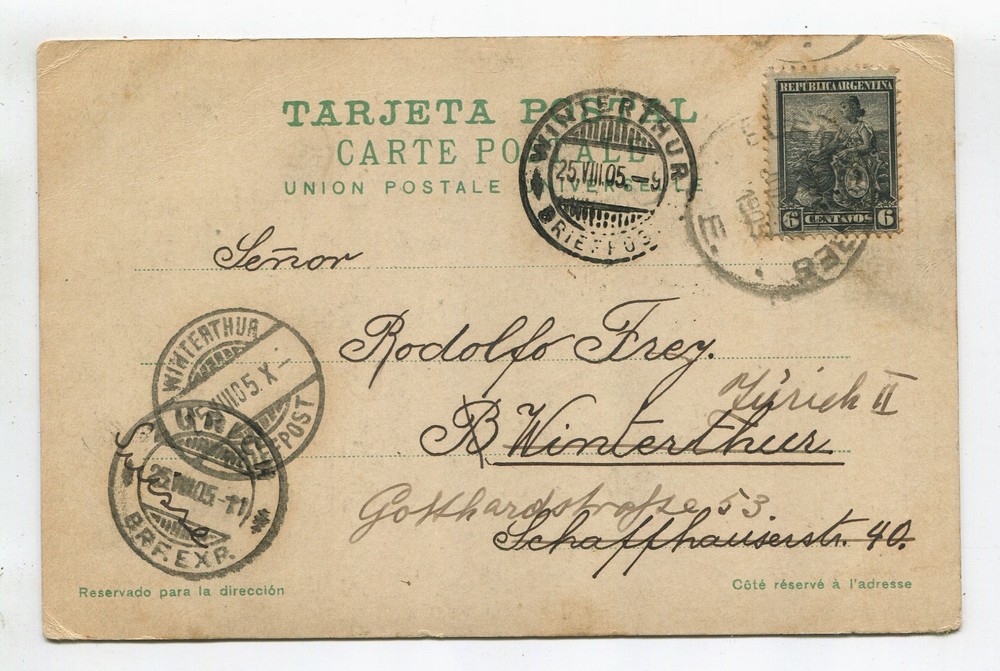 TARJETA POSTAL
CARTE POSTALE
UNION POSTALE UNIVERSELLE
WINTERTHUR
25.VIII.05.–9
BRIEFPOST
REPUBLICA ARGENTINA
6 CENTAVOS 6
Señor
Rodolfo Frey.
Zürich II
B Winterthur
Gotthardstrasse 53
Schaffhauserstr. 40.
WINTERTHUR
VIII.05.X–
BRIEFPOST
ZÜRICH
25.VIII.05.–11
BRF.EXP.
Suisse
Reservado para la dirección
Côté réservé à l'adresse